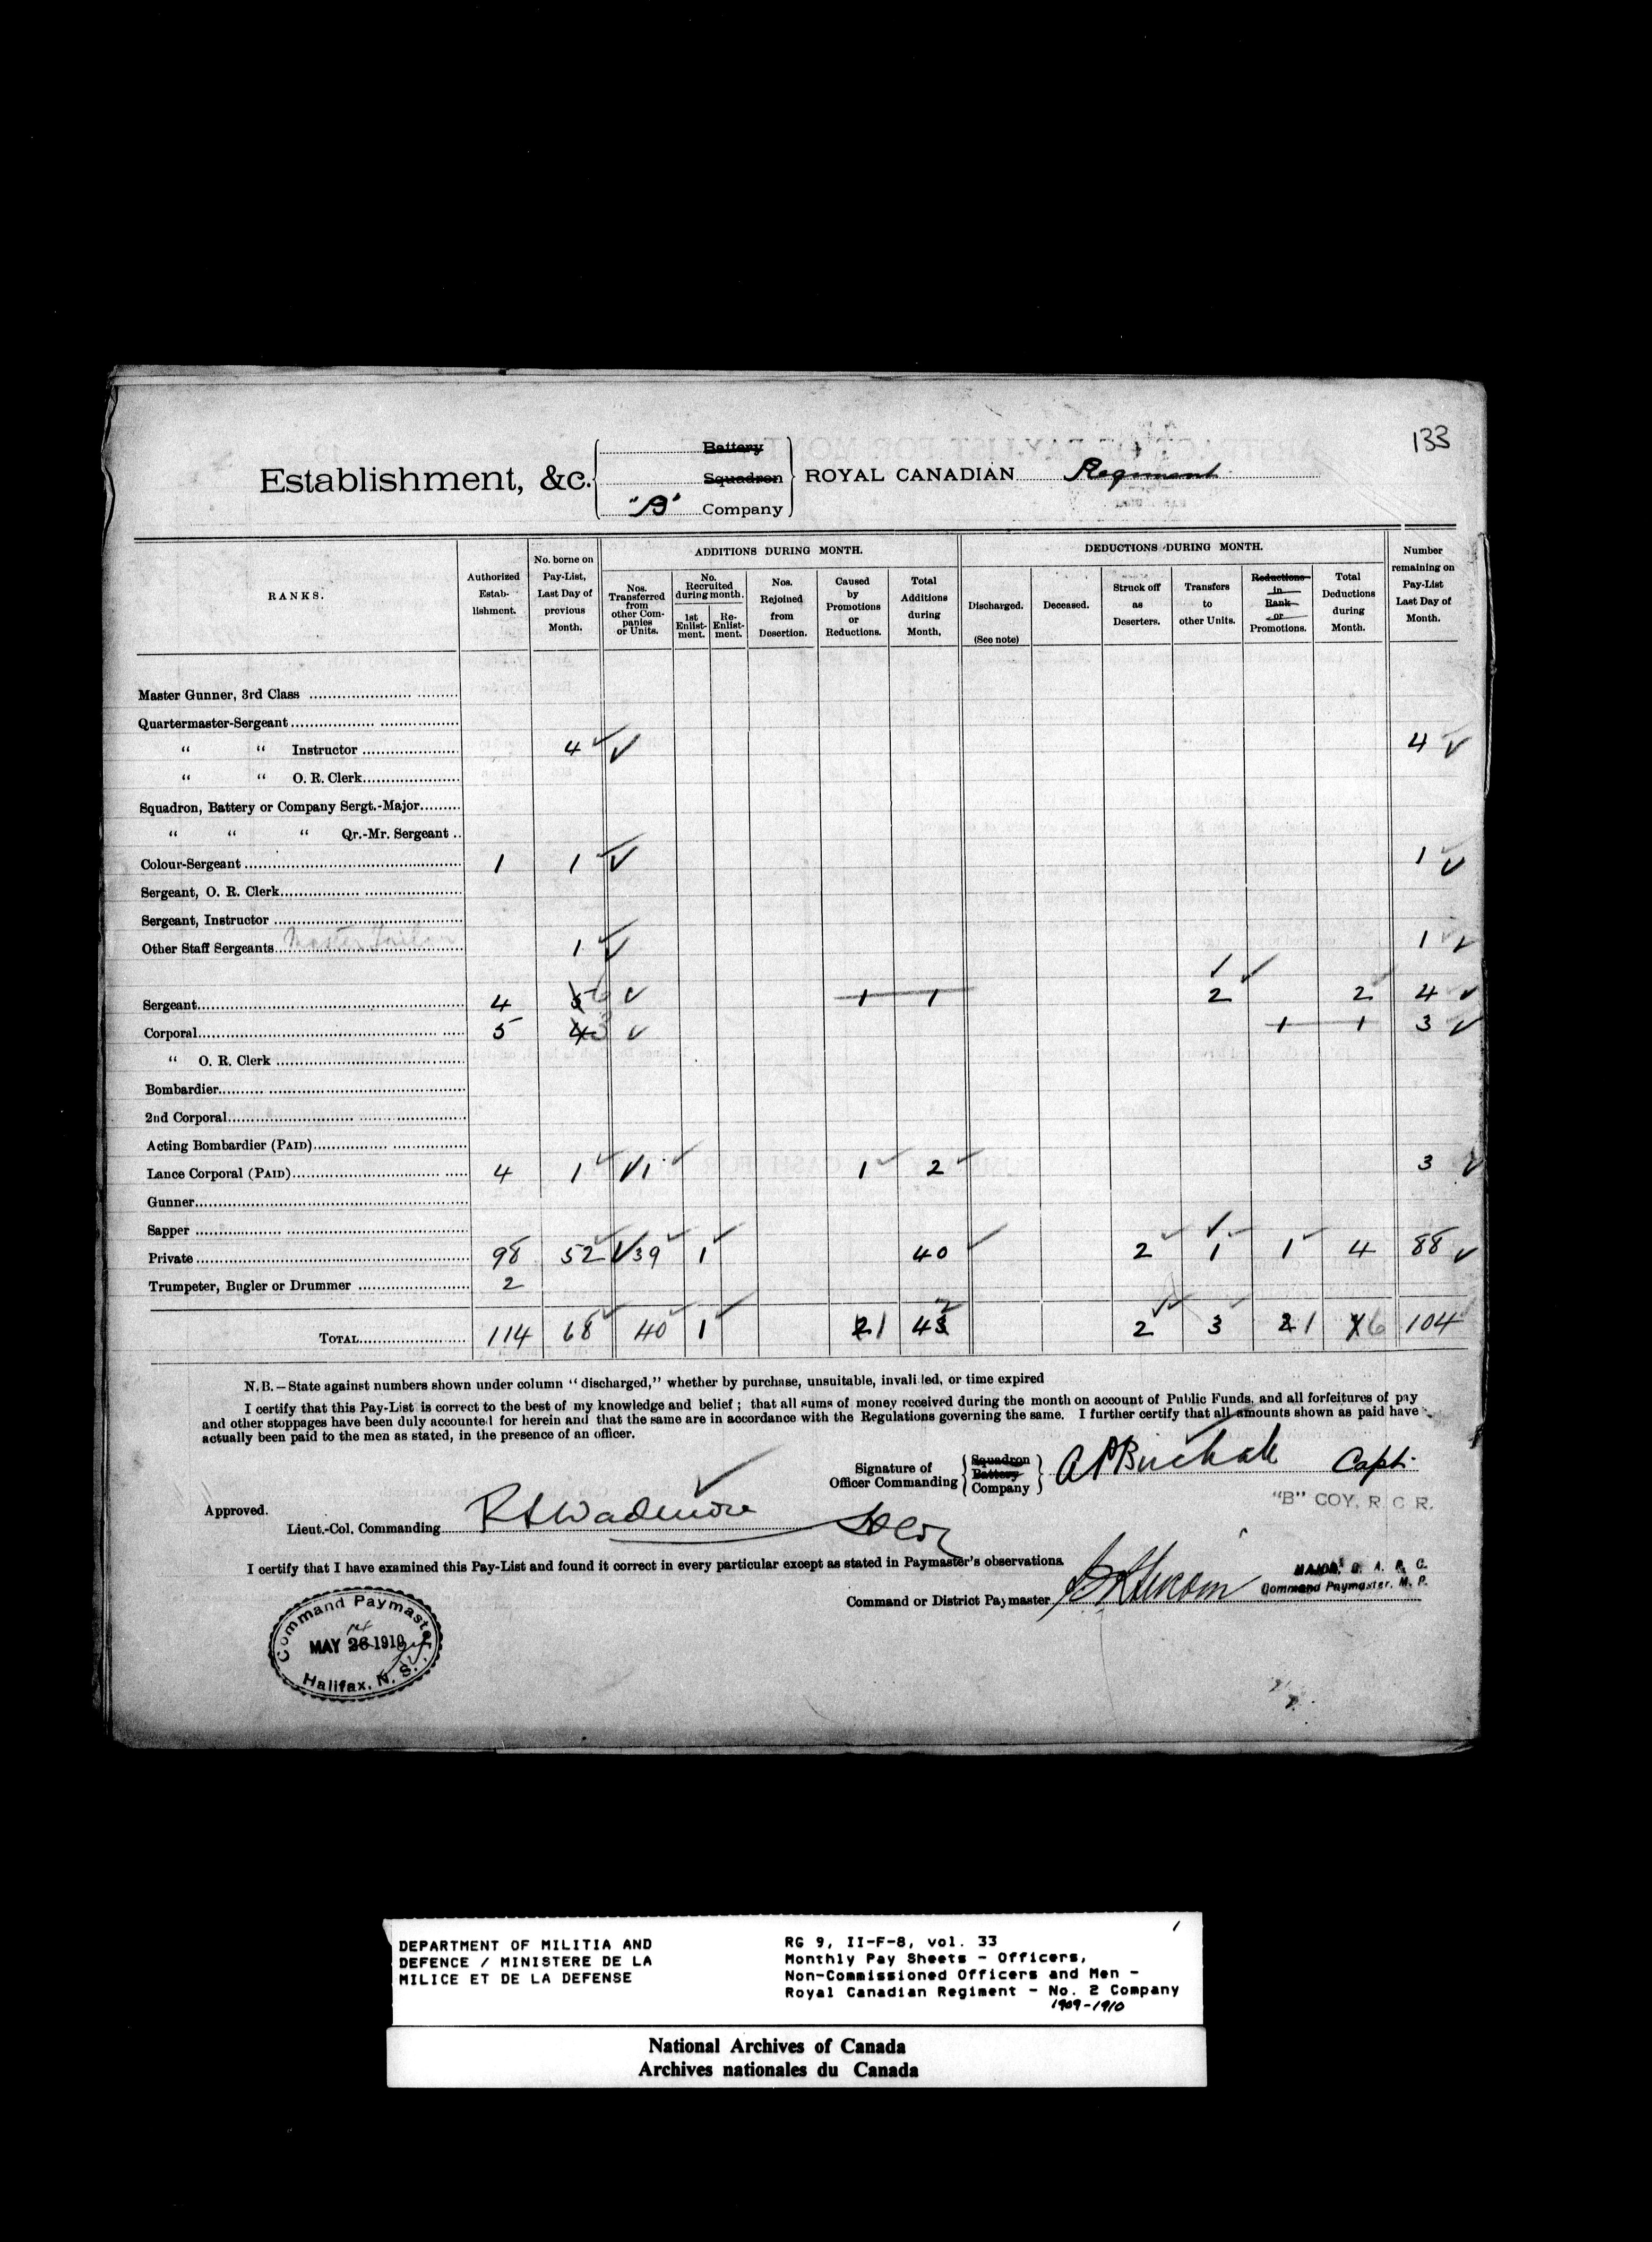 133
Establishment, &c. Battery
Squadron
"B" Company
ROYAL CANADIAN Regiment
RANKS.
Authorized Establishment.
No. borne on Pay-List, Last Day of previous Month.
ADDITIONS DURING MONTH.
Nos. Transferred from other Companies or Units.
No. Recruited during month.
1st Enlistment.
Re-Enlistment.
Nos. Rejoined from Desertion.
Caused by Promotions or Reductions.
Total Additions during Month,
DEDUCTIONS DURING MONTH.
Discharged. (See note)
Deceased.
Struck off as Deserters.
Transfers to other Units.
Reductions in Rank or Promotions.
Total Deductions during Month.
Number remaining on Pay-List Last Day of Month.
Master Gunner, 3rd Class
Quartermaster-Sergeant
" " Instructor 4 4
" " O. R. Clerk
Squadron, Battery or Company Sergt.-Major
" " " Qr.-Mr. Sergeant
Colour-Sergeant 1 1 1
Sergeant, O. R. Clerk
Sergeant, Instructor
Other Staff Sergeants Master Tailor 1 1
Sergeant 4 5 6 1 1 2 2 4
Corporal 5 4 3 1 1 3
" O. R. Clerk
Bombardier
2nd Corporal
Acting Bombardier (PAID)
Lance Corporal (PAID) 4 1 1 1 2 3
Gunner
Sapper
Private 98 52 39 1 40 2 1 1 4 88
Trumpeter, Bugler or Drummer 2
TOTAL 114 68 40 1 2 1 43 2 2 3 2 1 6 104
N.B.—State against numbers shown under column "discharged," whether by purchase, unsuitable, invalided, or time expired
I certify that this Pay-List is correct to the best of my knowledge and belief; that all sums of money received during the month on account of Public Funds, and all forfeitures of pay
and other stoppages have been duly accounted for herein and that the same are in accordance with the Regulations governing the same. I further certify that all amounts shown as paid have
actually been paid to the men as stated, in the presence of an officer.
Signature of Officer Commanding Squadron Battery Company Capt.
"B" COY, R. C R.
Approved.
Lieut.-Col. Commanding R H Wadmore
I certify that I have examined this Pay-List and found it correct in every particular except as stated in Paymaster's observations.
Command or District Paymaster
MAJOR, C. A. P. C.
Command Paymaster, M. P.
Command Paymaster
MAY 26 1910
Halifax, N. S.
1
DEPARTMENT OF MILITIA AND
DEFENCE / MINISTERE DE LA
MILICE ET DE LA DEFENSE
RG 9, II-F-8, vol. 33
Monthly Pay Sheets - Officers,
Non-Commissioned Officers and Men -
Royal Canadian Regiment - No. 2 Company
1909-1910
National Archives of Canada
Archives nationales du Canada